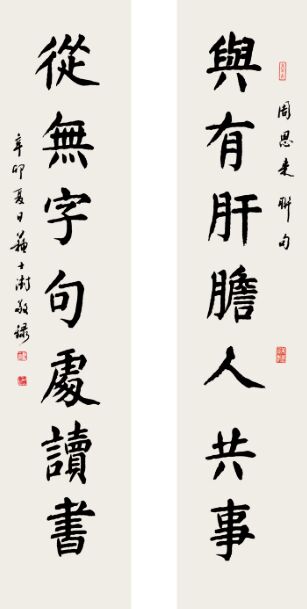 與有肝膽人共事
周恩來聯句
從無字句處讀書
辛卯夏日蘇士澍敬錄